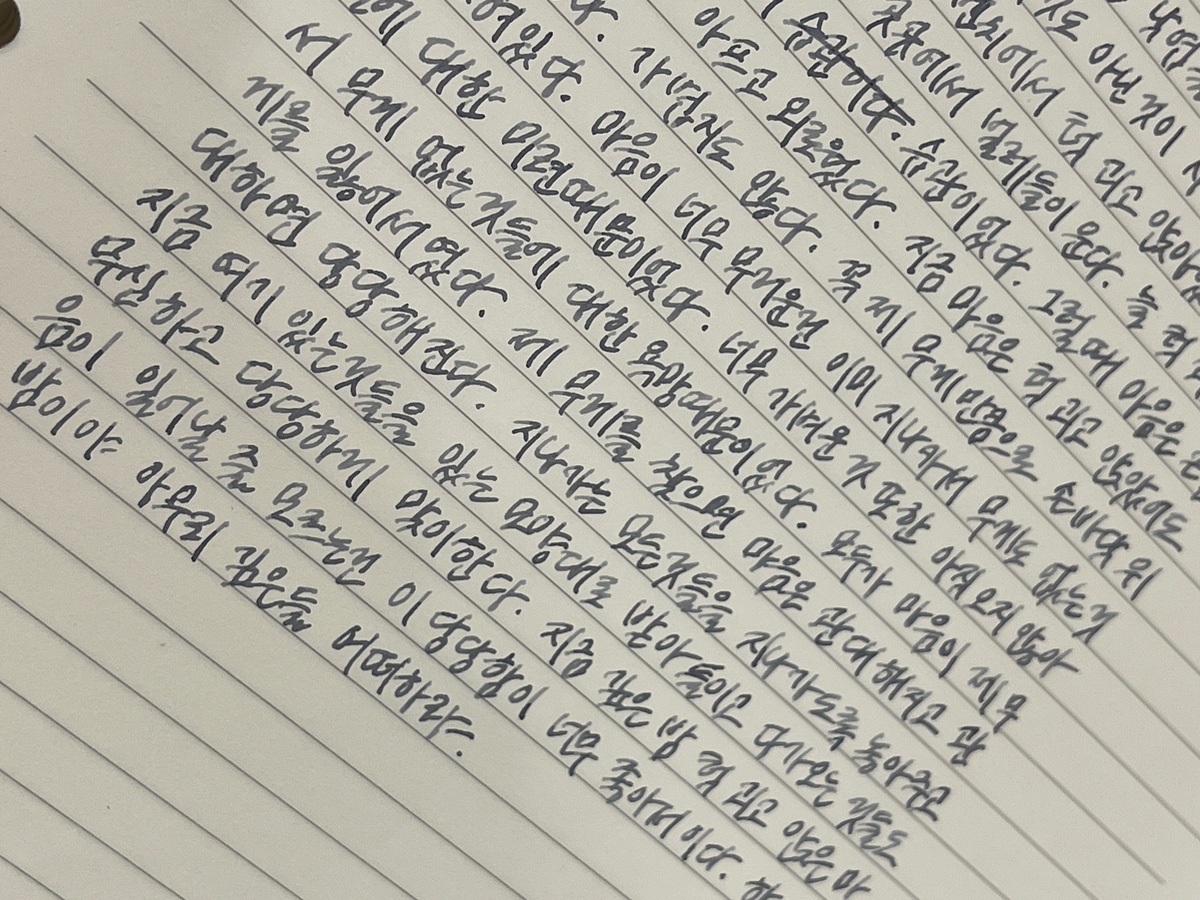 도 아닌 것이
에서 턱 괴고 앉아
곳곳에서 벌레들이 운다. 늘 턱
습관이다. 습관이었다. 그럴때 마음은
아프고 외로웠다. 지금 마음은 턱 괴고 앉았어도
다. 가볍지도 않다. 꼭 제 무게만큼으로 손바닥 위
여있다. 마음이 너무 무거운건 이미 지나가서 무게도 없는것
에 대한 미련때문이었다. 너무 가벼운 것 또한 아직 오지 않아
서 무게 없는것들에 대한 욕망때문이었다. 모두가 마음이 제 무
게를 잃어서였다. 제 무게를 찾으면 마음은 관대해지고 관
대하면 당당해진다. 지나가는 모든것들을 지나가도록 놓아주고
지금 여기 있는것들을 있는 모양대로 받아들이고 다가오는 것들도
무심하고 당당하게 맞이한다. 지금 깊은 밤 턱 괴고 앉은 마
음이 일어날 줄 모르는건 이 당당함이 너무 좋아서이다.
밤이야 아무리 깊은들 어떠하랴.